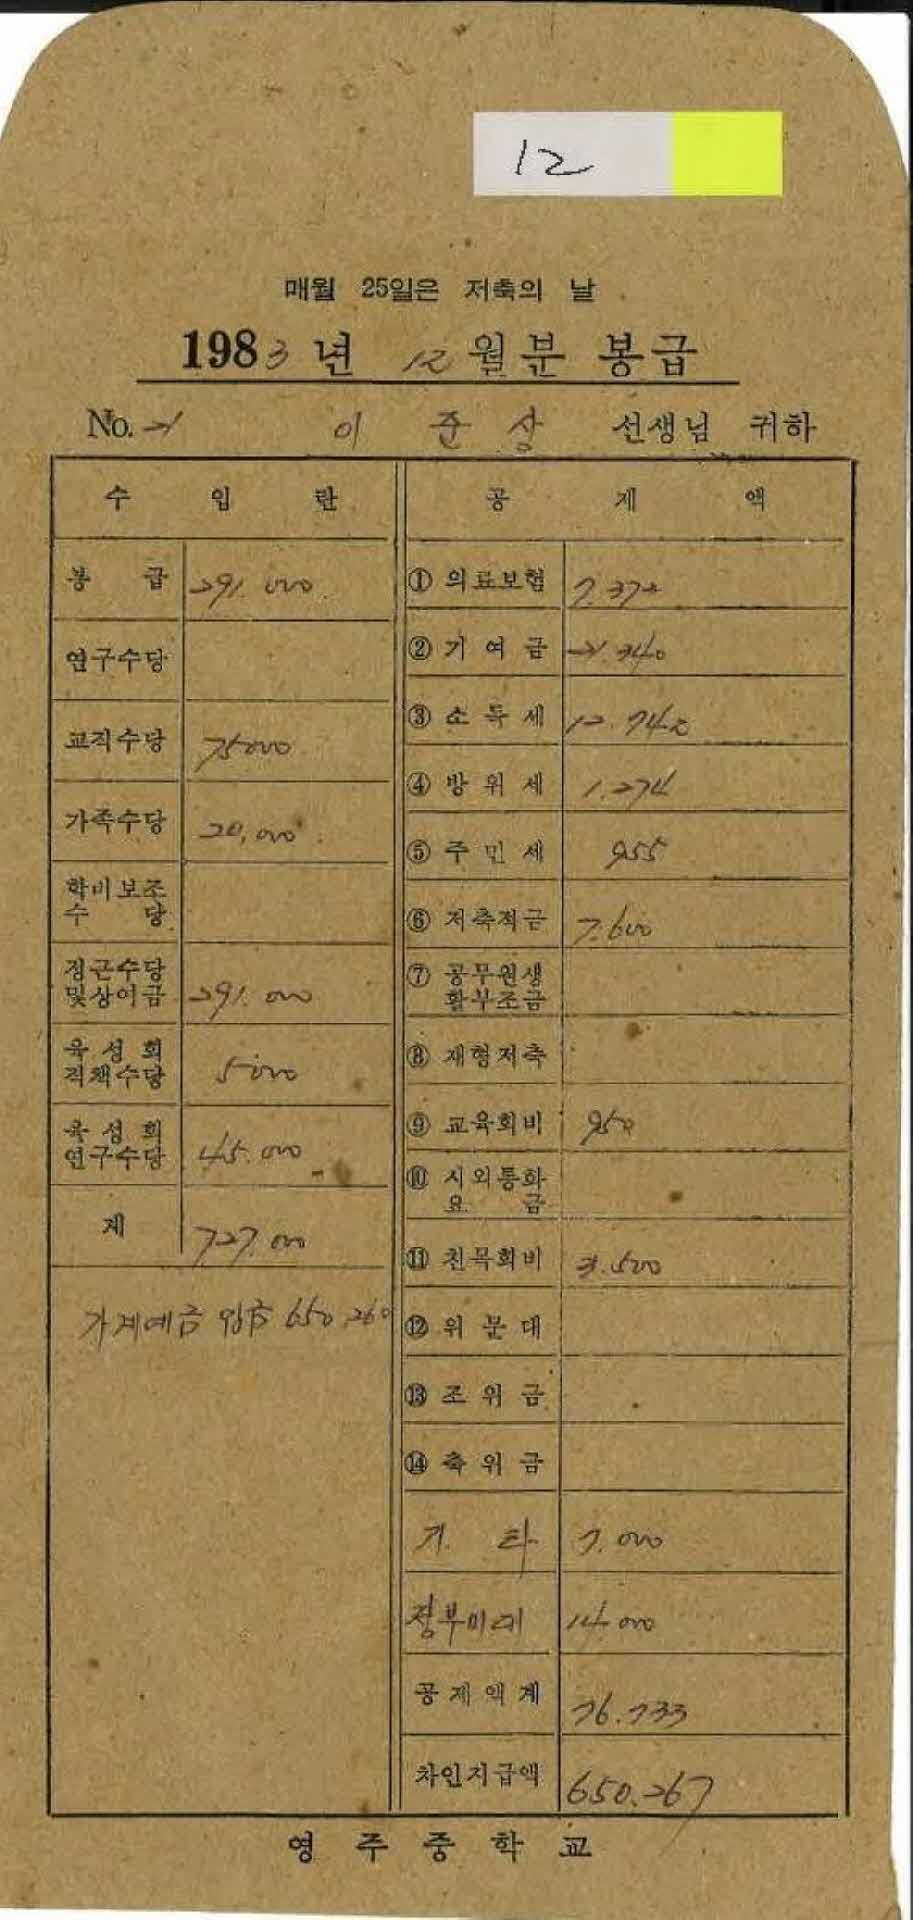 12
매월 25일은 저축의 날
1983년 12월분 봉급
No. 21 이 준 상 선생님 귀하
수 입 란
봉 급 291.000
연구수당
교직수당 75000
가족수당 20,000
학비보조
수 당
정근수당
및상여금 291.000
육성회
직책수당 5000
육성회
연구수당 45.000
계 727.000
가계예금 입금 650.260
공 제 액
① 의료보험 7.372
② 기여금 21.340
③ 소득세 12.742
④ 방위세 1.274
⑤ 주민세 955
⑥ 저축적금 7.600
⑦ 공무원생
활부조금
⑧ 재형저축
⑨ 교육회비 950
⑩ 시외통화
요 금
⑪ 친목회비 3.500
⑫ 위문대
⑬ 조위금
⑭ 축위금
기 타 7.000
정부미대 14.000
공제액계 76.733
차인지급액 650.267
영주중학교